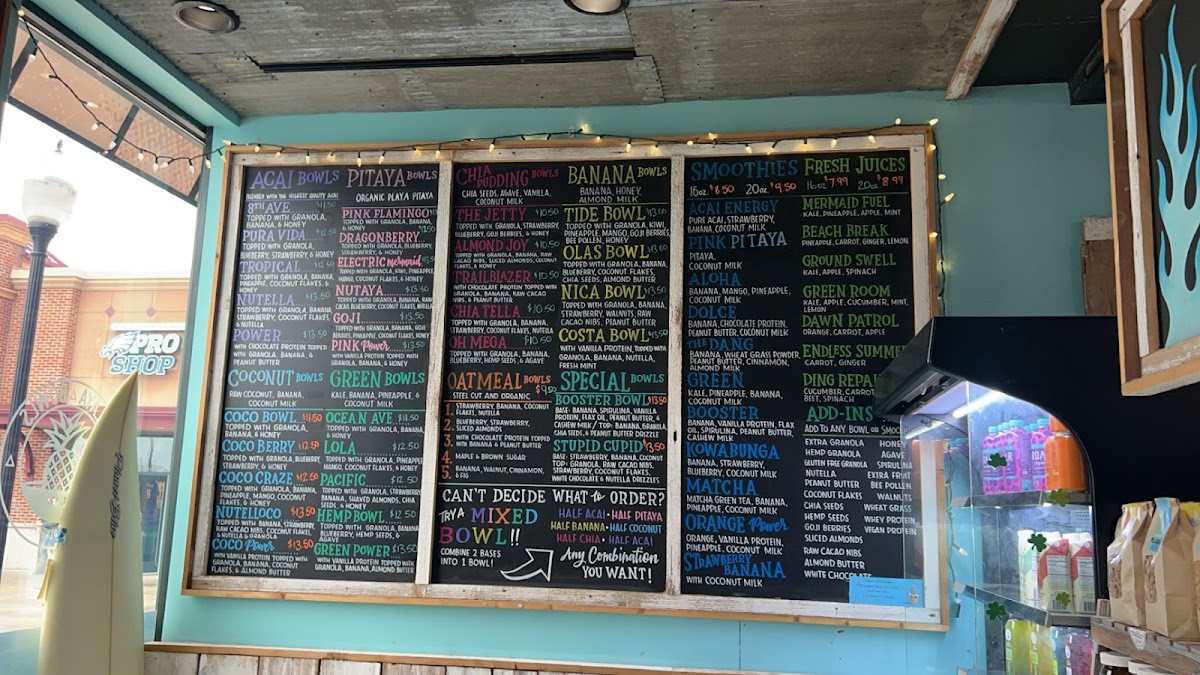 ACAI BOWLS
BLENDED WITH THE HIGHEST QUALITY ACAI
8TH AVE $11.50
TOPPED WITH GRANOLA,
BANANA, & HONEY
PURA VIDA
TOPPED WITH GRANOLA,
BLUEBERRY,
STRAWBERRY, & HONEY
TROPICAL
TOPPED WITH GRANOLA,
BANANA, STRAWBERRY,
PINEAPPLE, &
HONEY
NUTELLA $13.50
TOPPED WITH GRANOLA,
BANANA,
STRAWBERRY,
COCONUT FLAKES,
& NUTELLA
POWER $13.50
WITH CHOCOLATE PROTEIN TOPPED
WITH GRANOLA, BANANA, &
PEANUT BUTTER
COCONUT BOWLS
RAW COCONUT, BANANA,
COCONUT MILK
COCO BOWL $11.50
TOPPED WITH GRANOLA, BANANA,
& HONEY
COCO BERRY $12.50
TOPPED WITH GRANOLA, BLUEBERRY,
STRAWBERRY, & HONEY
COCO CRAZE $12.50
TOPPED WITH GRANOLA,
PINEAPPLE, MANGO, COCONUT
FLAKES, & HONEY
NUTELLOCO $13.50
TOPPED WITH BANANA, STRAWBERRY,
RAW CACAO NIBS, COCONUT FLAKES,
& NUTELLA & GRANOLA
COCO Power $13.50
WITH VANILLA PROTEIN TOPPED WITH
GRANOLA, BANANA, COCONUT
FLAKES, & ALMOND BUTTER
PITAYA BOWLS
ORGANIC PLAYA PITAYA
PINK FLAMINGO
TOPPED WITH GRANOLA, BANANA,
& HONEY
DRAGONBERRY
TOPPED WITH GRANOLA, BLUEBERRY,
STRAWBERRY, & HONEY
ELECTRIC mermaid
TOPPED WITH GRANOLA, KIWI, PINEAPPLE,
MANGO, COCONUT FLAKES, & HONEY
NUTAYA $13.50
TOPPED WITH GRANOLA, BANANA, RAW
CACAO, BLUEBERRY, COCONUT FLAKES, NUTELLA
GOJI $13.50
TOPPED WITH GRANOLA, BANANA, GOJI
BERRIES, PINEAPPLE, COCONUT FLAKES, & HONEY
PINK Power $13.50
WITH VANILLA PROTEIN TOPPED WITH
GRANOLA, BANANA, & HONEY
GREEN BOWLS
KALE, PINEAPPLE, BANANA,
COCONUT MILK
OCEAN AVE $11.50
TOPPED WITH GRANOLA, BANANA,
& HONEY
LOLA $12.50
TOPPED WITH GRANOLA, PINEAPPLE,
MANGO, COCONUT FLAKES, & HONEY
PACIFIC $12.50
TOPPED WITH GRANOLA, STRAWBERRY,
BANANA, SHAVED ALMONDS, CHIA
SEEDS, & PEANUT BUTTER
HEMP BOWL $12.50
TOPPED WITH GRANOLA, BANANA,
BLUEBERRY, HEMP SEEDS, &
AGAVE
GREEN POWER $13.50
WITH VANILLA PROTEIN, TOPPED WITH
GRANOLA, BANANA, ALMOND BUTTER
CHIA PUDDING BOWLS
CHIA SEEDS, AGAVE, VANILLA,
COCONUT MILK
THE JETTY $10.50
TOPPED WITH GRANOLA, STRAWBERRY,
BLUEBERRY, GOJI BERRIES, & HONEY
ALMOND JOY $10.50
TOPPED WITH GRANOLA, BANANA, RAW
CACAO NIBS, SLICED ALMONDS, COCONUT
FLAKES, & HONEY
TRAILBLAZER $10.50
WITH CHOCOLATE PROTEIN TOPPED WITH
GRANOLA, BANANA, RAW CACAO
NIBS, & PEANUT BUTTER
CHIA TELLA $10.50
TOPPED WITH GRANOLA, BANANA,
STRAWBERRY, COCONUT FLAKES, NUTELLA
OH MEGA $10.50
TOPPED WITH GRANOLA, BANANA,
BLUEBERRY, HEMP SEEDS, & AGAVE
OATMEAL BOWLS
STEEL CUT AND ORGANIC $9.50
1. STRAWBERRY, BANANA, COCONUT
FLAKES, NUTELLA
2. BLUEBERRY, STRAWBERRY,
SLICED ALMONDS
3. WITH CHOCOLATE PROTEIN TOPPED
WITH BANANA & PEANUT BUTTER
4. MAPLE & BROWN SUGAR
5. BANANA, WALNUT, CINNAMON,
& FIG
BANANA BOWLS
BANANA, HONEY,
ALMOND MILK
TIDE BOWL $13.00
TOPPED WITH GRANOLA, KIWI,
PINEAPPLE, MANGO, GOJI BERRIES,
BEE POLLEN, HONEY
OLAS BOWL $13.00
TOPPED WITH GRANOLA, BANANA,
BLUEBERRY, COCONUT FLAKES,
CHIA SEEDS, ALMOND BUTTER
NICA BOWL $13.50
TOPPED WITH GRANOLA, BANANA,
STRAWBERRY, WALNUTS, RAW
CACAO NIBS, PEANUT BUTTER
COSTA BOWL $13.50
WITH VANILLA PROTEIN, TOPPED WITH
GRANOLA, BANANA, NUTELLA,
FRESH MINT
SPECIAL BOWLS
BOOSTER BOWL $13.50
BASE: BANANA, SPIRULINA, VANILLA
PROTEIN, FLAX OIL, PEANUT BUTTER, &
CASHEW MILK / TOP: BANANA, GRANOLA,
CHIA SEEDS, & PEANUT BUTTER DRIZZLE
STUPID CUPID $13.50
BASE: STRAWBERRY, BANANA, COCONUT
TOP: GRANOLA, RAW CACAO NIBS,
STRAWBERRY, COCONUT FLAKES,
WHITE CHOCOLATE & NUTELLA DRIZZLES
CAN'T DECIDE WHAT to ORDER?
TRY A MIXED
BOWL!!
COMBINE 2 BASES
INTO 1 BOWL!
HALF ACAI • HALF PITAYA
HALF BANANA • HALF COCONUT
HALF CHIA • HALF ACAI
Any Combination
YOU WANT!
SMOOTHIES
16oz. $8.50 20oz. $9.50
ACAI ENERGY
PURE ACAI, STRAWBERRY,
BANANA, COCONUT MILK
PINK PITAYA
PITAYA,
COCONUT MILK
ALOHA
BANANA, MANGO, PINEAPPLE,
COCONUT MILK
DOLCE
BANANA, CHOCOLATE PROTEIN,
PEANUT BUTTER, COCONUT MILK
THE DANG
BANANA, WHEAT GRASS POWDER,
PEANUT BUTTER, CINNAMON,
ALMOND MILK
GREEN
KALE, PINEAPPLE, BANANA,
COCONUT MILK
BOOSTER
BANANA, VANILLA PROTEIN, FLAX
OIL, SPIRULINA, PEANUT BUTTER,
CASHEW MILK
KOWABUNGA
BANANA, STRAWBERRY,
BLUEBERRY, COCONUT MILK
MATCHA
MATCHA GREEN TEA, BANANA,
COCONUT MILK
ORANGE Power
ORANGE, VANILLA PROTEIN,
PINEAPPLE, COCONUT MILK
STRAWBERRY
BANANA
WITH COCONUT MILK
FRESH JUICES
16oz $7.99 20oz $8.99
MERMAID FUEL
KALE, PINEAPPLE, APPLE, MINT
BEACH BREAK
PINEAPPLE, CARROT, GINGER, LEMON
GROUND SWELL
KALE, APPLE, SPINACH
GREEN ROOM
KALE, APPLE, CUCUMBER, MINT,
LEMON
DAWN PATROL
ORANGE, CARROT, APPLE
ENDLESS SUMMER
CARROT, GINGER
DING REPAIR
CUCUMBER, CARROT,
BEET, SPINACH
ADD-INS
ADD TO ANY BOWL OR SMOO
EXTRA GRANOLA
HEMP GRANOLA
GLUTEN FREE GRANOLA
NUTELLA
PEANUT BUTTER
COCONUT FLAKES
CHIA SEEDS
HEMP SEEDS
GOJI BERRIES
SLICED ALMONDS
RAW CACAO NIBS
ALMOND BUTTER
WHITE CHOCOLATE
HONEY
AGAVE
SPIRULINA
EXTRA FRUIT
BEE POLLEN
WALNUTS
WHEAT GRASS
WHEY PROTEIN
VEGAN PROTEIN
PRO
SHOP